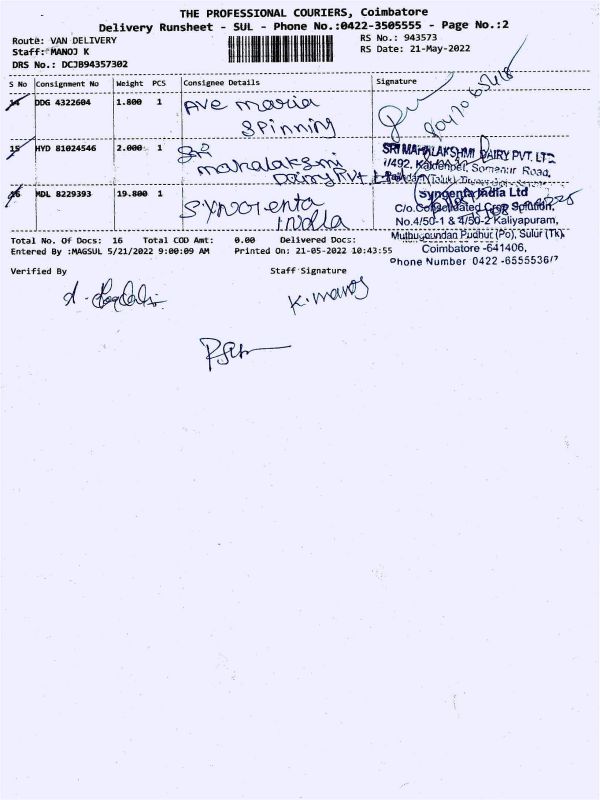 THE PROFESSIONAL COURIERS, Coimbatore
Delivery Runsheet - SUL - Phone No.:0422-3505555 - Page No.:2
Route: VAN DELIVERY
RS No.: 943573
Staff: MANOJ K
RS Date: 21-May-2022
DRS No.: DCJB94357302
S No Consignment No Weight PCS Consignee Details Signature
14 DDG 4322604 1.800 1 Ave maria
spinning
15 HYD 81024546 2.000 1 Sri
mahalakshmi
Dairy Pvt Ltd
SRI MAHALAKSHMI DAIRY PVT. LTD
Somanur Road,
16 MDL 8229393 19.800 1 Syngenta
India
Syngenta India Ltd
C/o.Consolidated Crop Solution,
No.4/50-1 & 4/50-2 Kaliyapuram,
Muthugoundan Pudhur (Po), Sulur (Tk),
Coimbatore -641406,
Phone Number 0422 -6555536/7
Total No. Of Docs: 16 Total COD Amt: 0.00 Delivered Docs:
Entered By :MAGSUL 5/21/2022 9:00:09 AM Printed On: 21-05-2022 10:43:55
Verified By Staff Signature
K. Manoj